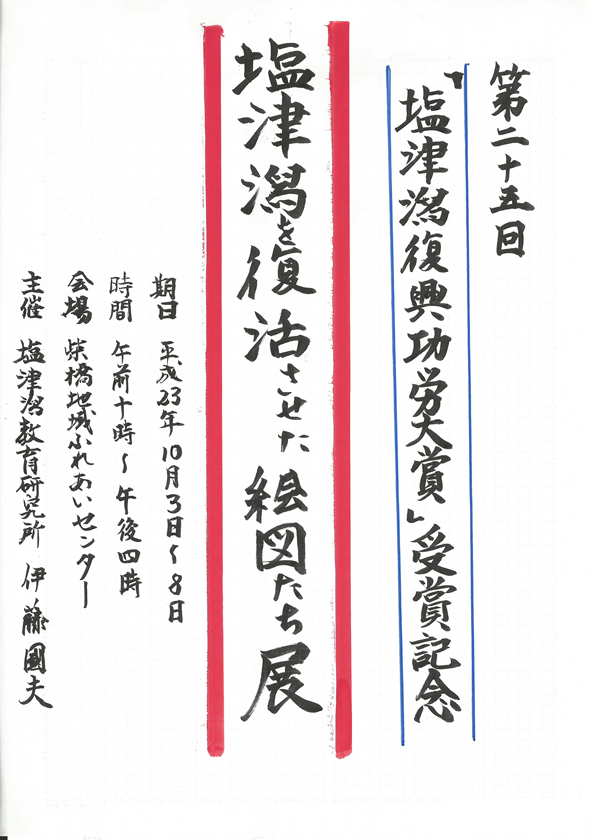 第二十五回
「塩津潟復興功労大賞」受賞記念
塩津潟を復活させた絵図たち展
期日 平成23年10月3日~8日
時間 午前十時~午後四時
会場 柴橋地域ふれあいセンター
主催 塩津潟教育研究所 伊藤國夫